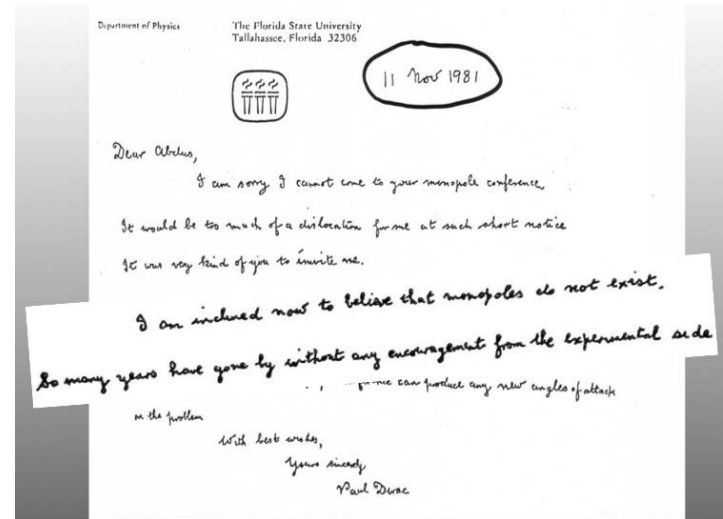 Department of Physics
The Florida State University
Tallahassee, Florida 32306
11 Nov 1981
Dear Abdus,
I am sorry I cannot come to your monopole conference.
It would be too much of a dislocation for me at such short notice
It was very kind of you to invite me.
I am inclined now to believe that monopoles do not exist.
So many years have gone by without any encouragement from the experimental side
can produce any new angles of attack
on the problem
With best wishes,
Yours sincerely
Paul Dirac